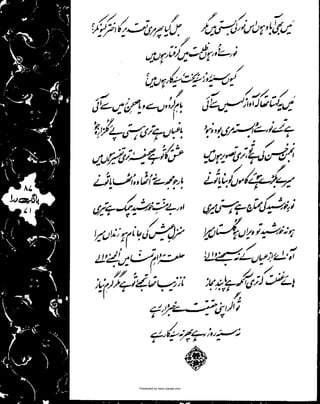 میں بھی آباد ہوں اس نور کی بستی میں مگر جل گیا پھر مری تقدیر کا اختر کیونکر؟
نور سے دور ہوں ظلمت میں گرفتار ہوں میں
کیوں سیہ روز، سیہ بخت، سیہ کار ہوں میں؟
میں یہ کہتا تھا کہ آواز کہیں سے آئی بامِ گردوں سے وہ یا صحنِ زمیں سے آئی
ہے ترے نور سے وابستہ مری بود و نبود باغباں ہے تری ہستی پئے گلزارِ وجود
انجمن حسن کی ہے تو، تری تصویر ہوں میں عشق کا تو ہے صحیفہ، تری تفسیر ہوں میں
میرے بگڑے ہوئے کاموں کو بنایا تو نے بار جو مجھ سے نہ اٹھا وہ اٹھایا تو نے
نورِ خورشید کی محتاج ہے ہستی میری اور بے منتِ خورشید چمک ہے تیری
ہو نہ خورشید تو ویراں ہو گلستاں میرا منزلِ عیش کی جا نام ہو زنداں میرا
آہ اے رازِ عیاں کے نہ سمجھنے والے! حلقۂ دامِ تمنا میں الجھنے والے
ہائے غفلت کہ تری آنکھ ہے پابندِ مجاز ناز زیبا تھا تجھے، تو ہے مگر گرمِ نیاز
تو اگر اپنی حقیقت سے خبردار رہے
نہ سیہ روز رہے پھر نہ سیہ کار رہے
۸۷
بانگِ درا
۷۱